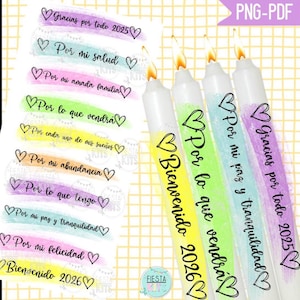 PNG-PDF
Gracias por todo 2025
Por mi salud
Por mi amada familia
Por lo que vendrá
Por cada uno de mis sueños
Por mi abundancia
Por lo que tengo
Por mi paz y tranquilidad
Por mi felicidad
Bienvenido 2026
Bienvenido 2026
Por lo que vendrá
Por mi paz y tranquilidad
Gracias por todo 2025
FIESTA